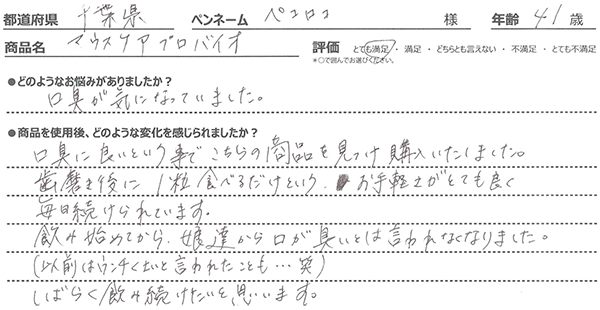 都道府県 千葉県 ペンネーム ペコロコ 様 年齢 41 歳
商品名 マウスケアプロバイオ 評価 とても満足・満足・どちらとも言えない・不満足・とても不満足
*○で囲んでお選びください。
●どのようなお悩みがありましたか？
口臭が気になっていました。
●商品を使用後、どのような変化を感じられましたか？
口臭に良いという事でこちらの商品を見つけ購入いたしました。
歯磨き後に1粒食べるだけという、お手軽さがとても良く
毎日続けられています。
飲み始めてから、娘達から口が臭いとは言われなくなりました。
(以前はウンチくさいと言われたことも…笑)
しばらく飲み続けたいと思います。